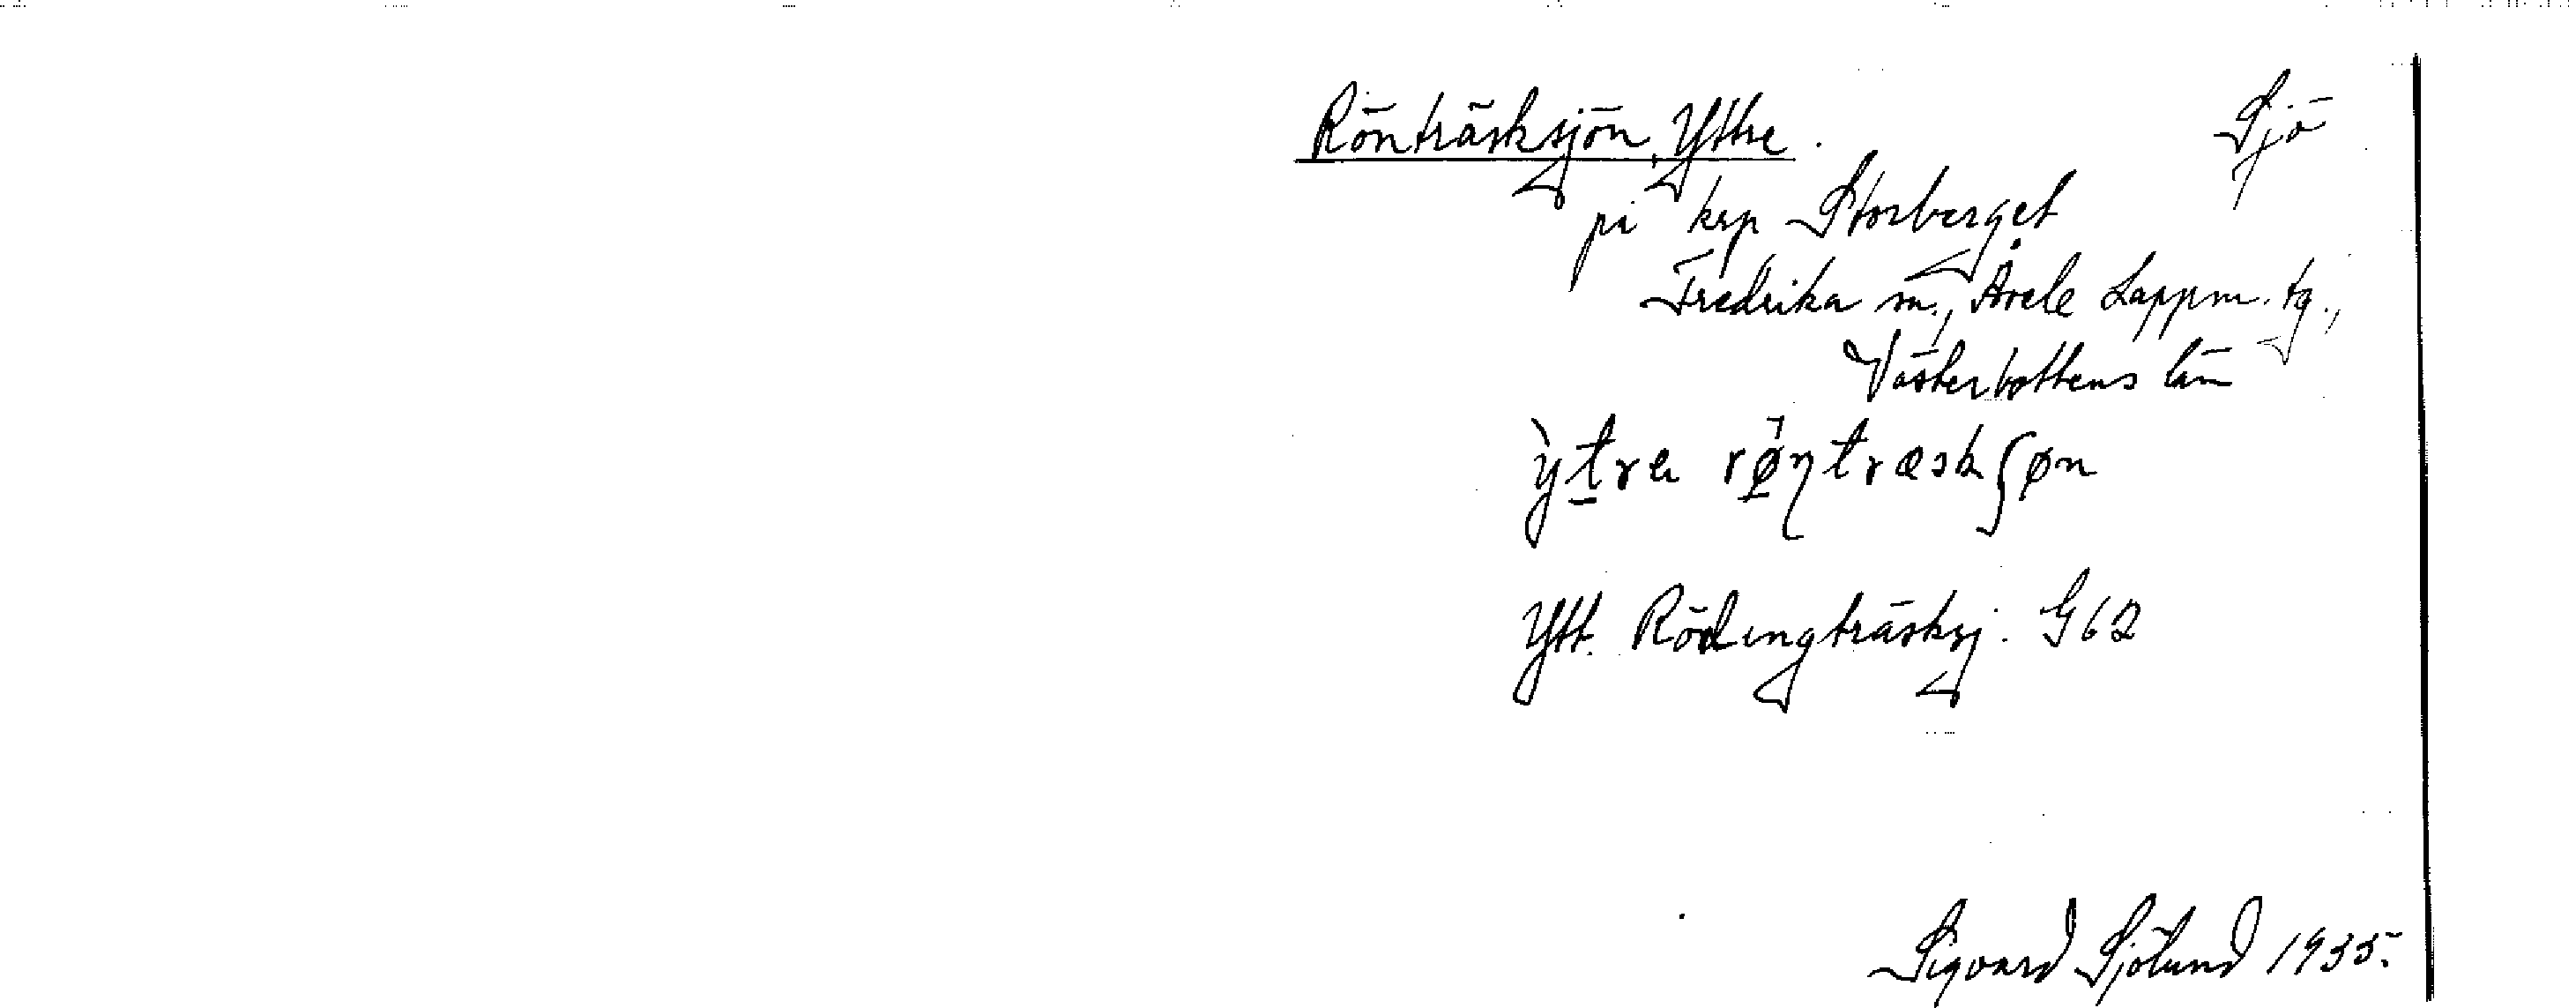 Rönträsksjön, Yttre. Sjö
på krp Storberget
Fredrika sn., Åsele Lappm. tg.,
Västerbottens län
ỳtra rø̀ntræskʃøn
Ytt. Rödingträsksj. G62
Sigvard Sjölund 1935.